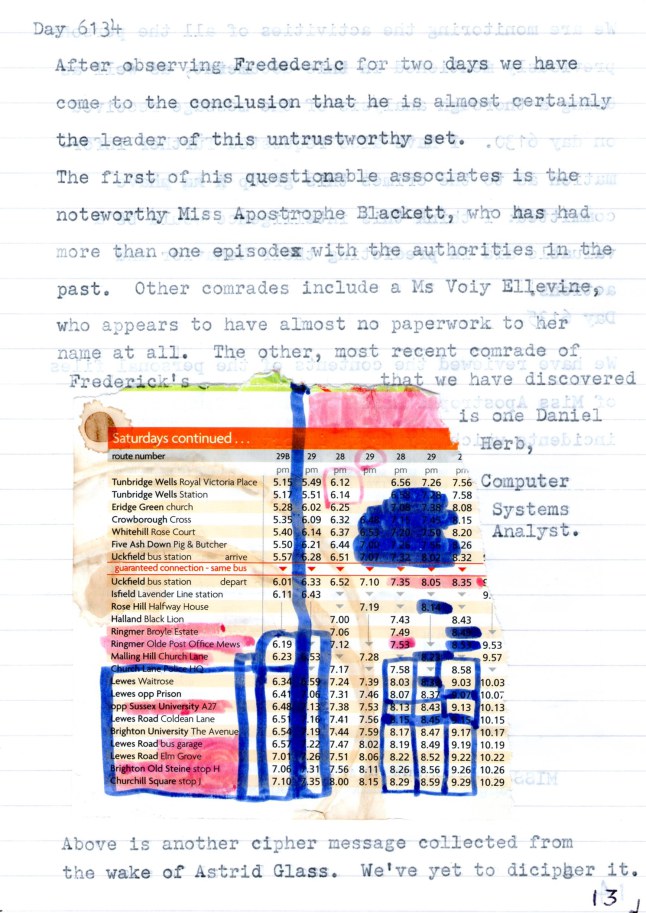 Day 6134
After observing Fredederic for two days we have
come to the conclusion that he is almost certainly
the leader of this untrustworthy set.
The first of his questionable associates is the
noteworthy Miss Apostrophe Blackett, who has had
more than one episodes with the authorities in the
past. Other comrades include a Ms Voiy Ellevine,
who appears to have almost no paperwork to her
name at all. The other, most recent comrade of
Frederick's that we have discovered
is one Daniel
Herb,
Computer
Systems
Analyst.
Saturdays continued . . .
route number 29B 29 28 28 28 29
pm pm pm pm pm pm
Tunbridge Wells Royal Victoria Place 5.15 5.49 6.12 6.56 7.26 7.56
Tunbridge Wells Station 5.17 5.51 6.14 7.58
Eridge Green church 5.28 6.02 6.25 8.08
Crowborough Cross 5.35 6.09 6.32 8.15
Whitehill Rose Court 5.40 6.14 6.37 8.20
Five Ash Down Pig & Butcher 5.50 6.21 6.44 8.26
Uckfield bus station arrive 5.57 6.28 6.51 7.07 7.32 8.02 8.32
guaranteed connection - same bus
Uckfield bus station depart 6.01 6.33 6.52 7.10 7.35 8.05 8.35
Isfield Lavender Line station 6.11 6.43
Rose Hill Halfway House 7.19 8.14
Halland Black Lion 7.00 7.43 8.43
Ringmer Broyle Estate 7.06 7.49
Ringmer Olde Post Office Mews 6.19 7.12 7.53 9.53
Malling Hill Church Lane 6.23 6.53 7.28 9.57
Church Lane Police HQ 7.17 7.58 8.58
Lewes Waitrose 6.34 6.59 7.24 7.39 8.03 9.03 10.03
Lewes opp Prison 6.41 7.06 7.31 7.46 8.07 8.37 9.07 10.07
opp Sussex University A27 6.48 7.13 7.38 7.53 8.13 8.43 9.13 10.13
Lewes Road Coldean Lane 6.51 7.16 7.41 7.56 8.15 8.45 9.15 10.15
Brighton University The Avenue 6.54 7.19 7.44 7.59 8.17 8.47 9.17 10.17
Lewes Road bus garage 6.57 7.22 7.47 8.02 8.19 8.49 9.19 10.19
Lewes Road Elm Grove 7.01 7.26 7.51 8.06 8.22 8.52 9.22 10.22
Brighton Old Steine stop H 7.06 7.31 7.56 8.11 8.26 8.56 9.26 10.26
Churchill Square stop J 7.10 7.35 8.00 8.15 8.29 8.59 9.29 10.29
Above is another cipher message collected from
the wake of Astrid Glass. We've yet to dicipher it.
13